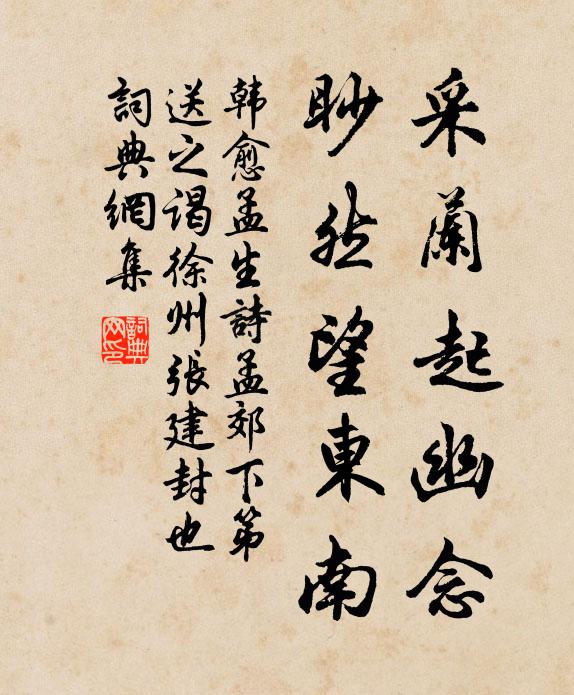 采蘭起幽念
眇然望東南
韩愈孟生詩孟郊下第
送之谒徐州張建封也
詞典網集
詞典
网印